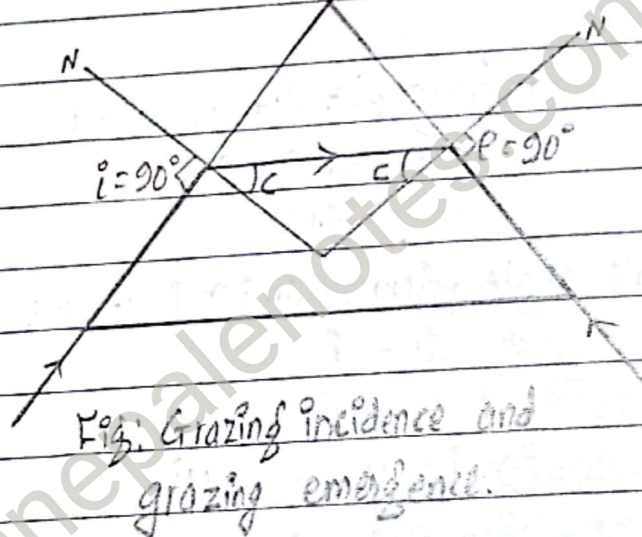 N
N
i=90°
c
c
e=90°
Fig: Grazing incidence and
grazing emergence.
inepalenotes.com